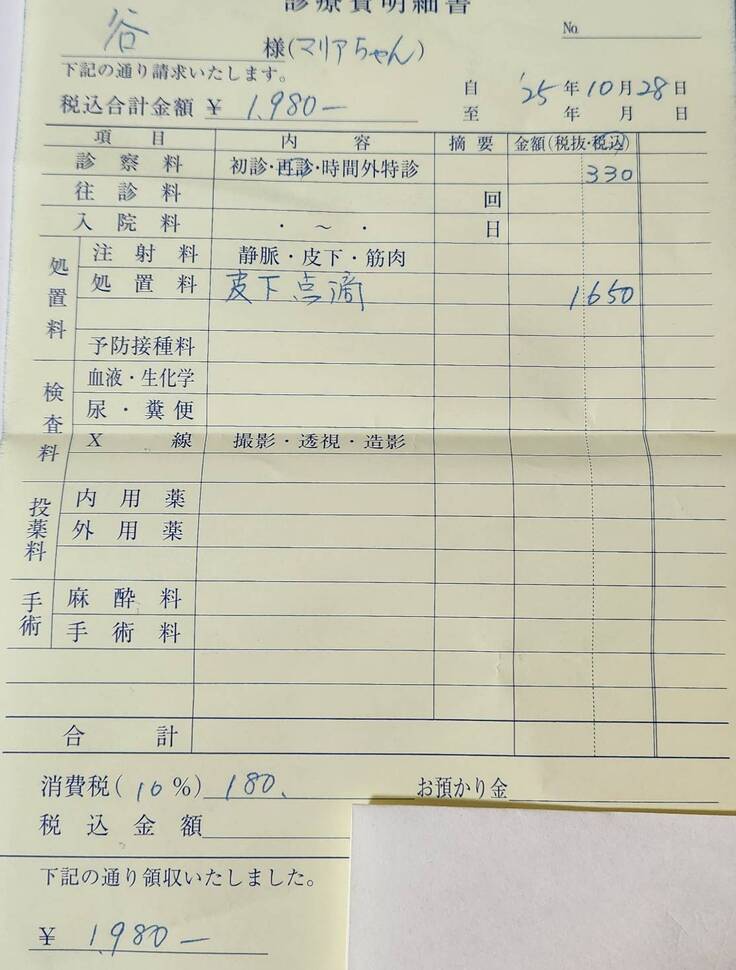 診療費明細書
No.
谷 様(マリアちゃん)
下記の通り請求いたします。
税込合計金額 ¥ 1,980-
自 '25年10月28日
至 年 月 日
項目 内容 摘要 金額(税抜・税込)
診察料 初診・再診・時間外特診 330
往診料 回
入院料 ・ ~ ・ 日
処置料
注射料 静脈・皮下・筋肉
処置料 皮下点滴 1650
予防接種料
検査料
血液・生化学
尿・糞便
X線 撮影・透視・造影
投薬料
内用薬
外用薬
手術
麻酔料
手術料
合計
消費税(10%) 180. お預かり金
税込金額
下記の通り領収いたしました。
¥ 1,980-